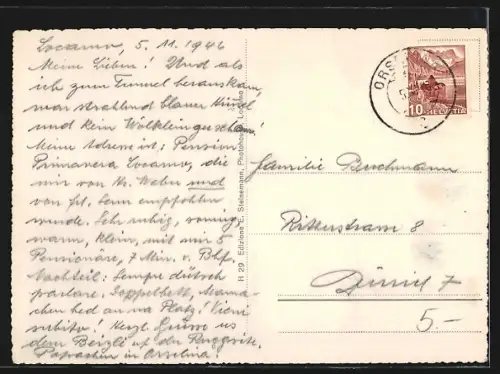 Locarno, 5. 11. 1946
Meine Lieben! Und als
ich zum Tunnel herauskam,
war strahlend blauer Himmel
und kein Wölklein
Meine Adresse ist: Pension
Primavera Locarno, die
mir von Hr. Weber und
von Frl. Senn empfohlen
wurde. Sehr ruhig, sonnig,
warm, klein, mit mir 5
Pensionäre, 7 Min. v. Bhf.
Nachteil: Sempre dütsch
parlare. Doppelbett, Mama-
chen hed au na Platz! Vieni
subito! Herzl. Grüsse us
dem Beizli uf der
in Orselina!
H 29 Edizione E. Steinemann, Locarno
ORS
10
HELVETIA
Familie Buschmann
Ritterstrasse 8
Zürich 7
5.-